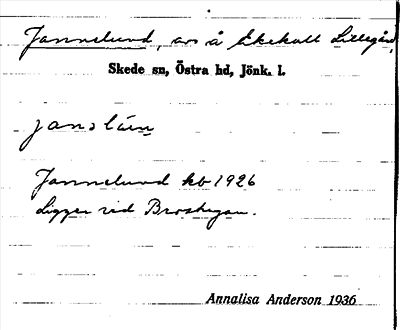 Jannelund, avs å Ekekull Lillegård,
Skede sn, Östra hd, Jönk. l.
Jannelund kb 1926
Ligger vid
Annalisa Anderson 1936